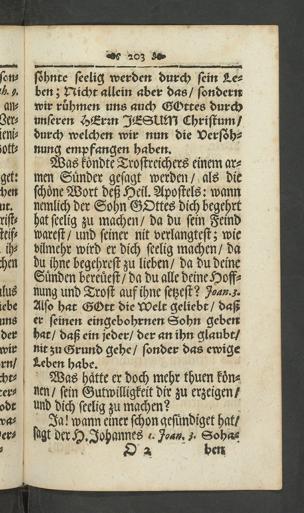 203
söhnte seelig werden durch sein Le-
ben; Nicht allein aber das/ sondern
wir rühmen uns auch GOttes durch
unseren HErrn JESUM Christum/
durch welchen wir nun die Versöh-
nung empfangen haben.
Was köndte Trostreichers einem ar-
men Sünder gesagt werden/ als die
schöne Wort deß Heil. Apostels: wann
nemlich der Sohn GOttes dich begehrt
hat seelig zu machen/ da du sein Feind
warest/ und seiner nit verlangtest; wie
vilmehr wird er dich seelig machen/ da
du ihne begehrest zu lieben/ da du deine
Sünden bereüest/ da du alle deine Hoff-
nung und Trost auf ihne setzest? Joan. 3.
Also hat GOtt die Welt geliebt/ daß
er seinen eingebohrnen Sohn geben
hat/ daß ein jeder/ der an ihn glaubt/
nit zu Grund gehe/ sonder das ewige
Leben habe.
Was hätte er doch mehr thuen kön-
nen/ sein Gutwilligkeit dir zu erzeigen/
und dich seelig zu machen?
Ja! wann einer schon gesündiget hat/
sagt der H. Johannes 1. Joan. 3. Soha-
O 2 ben